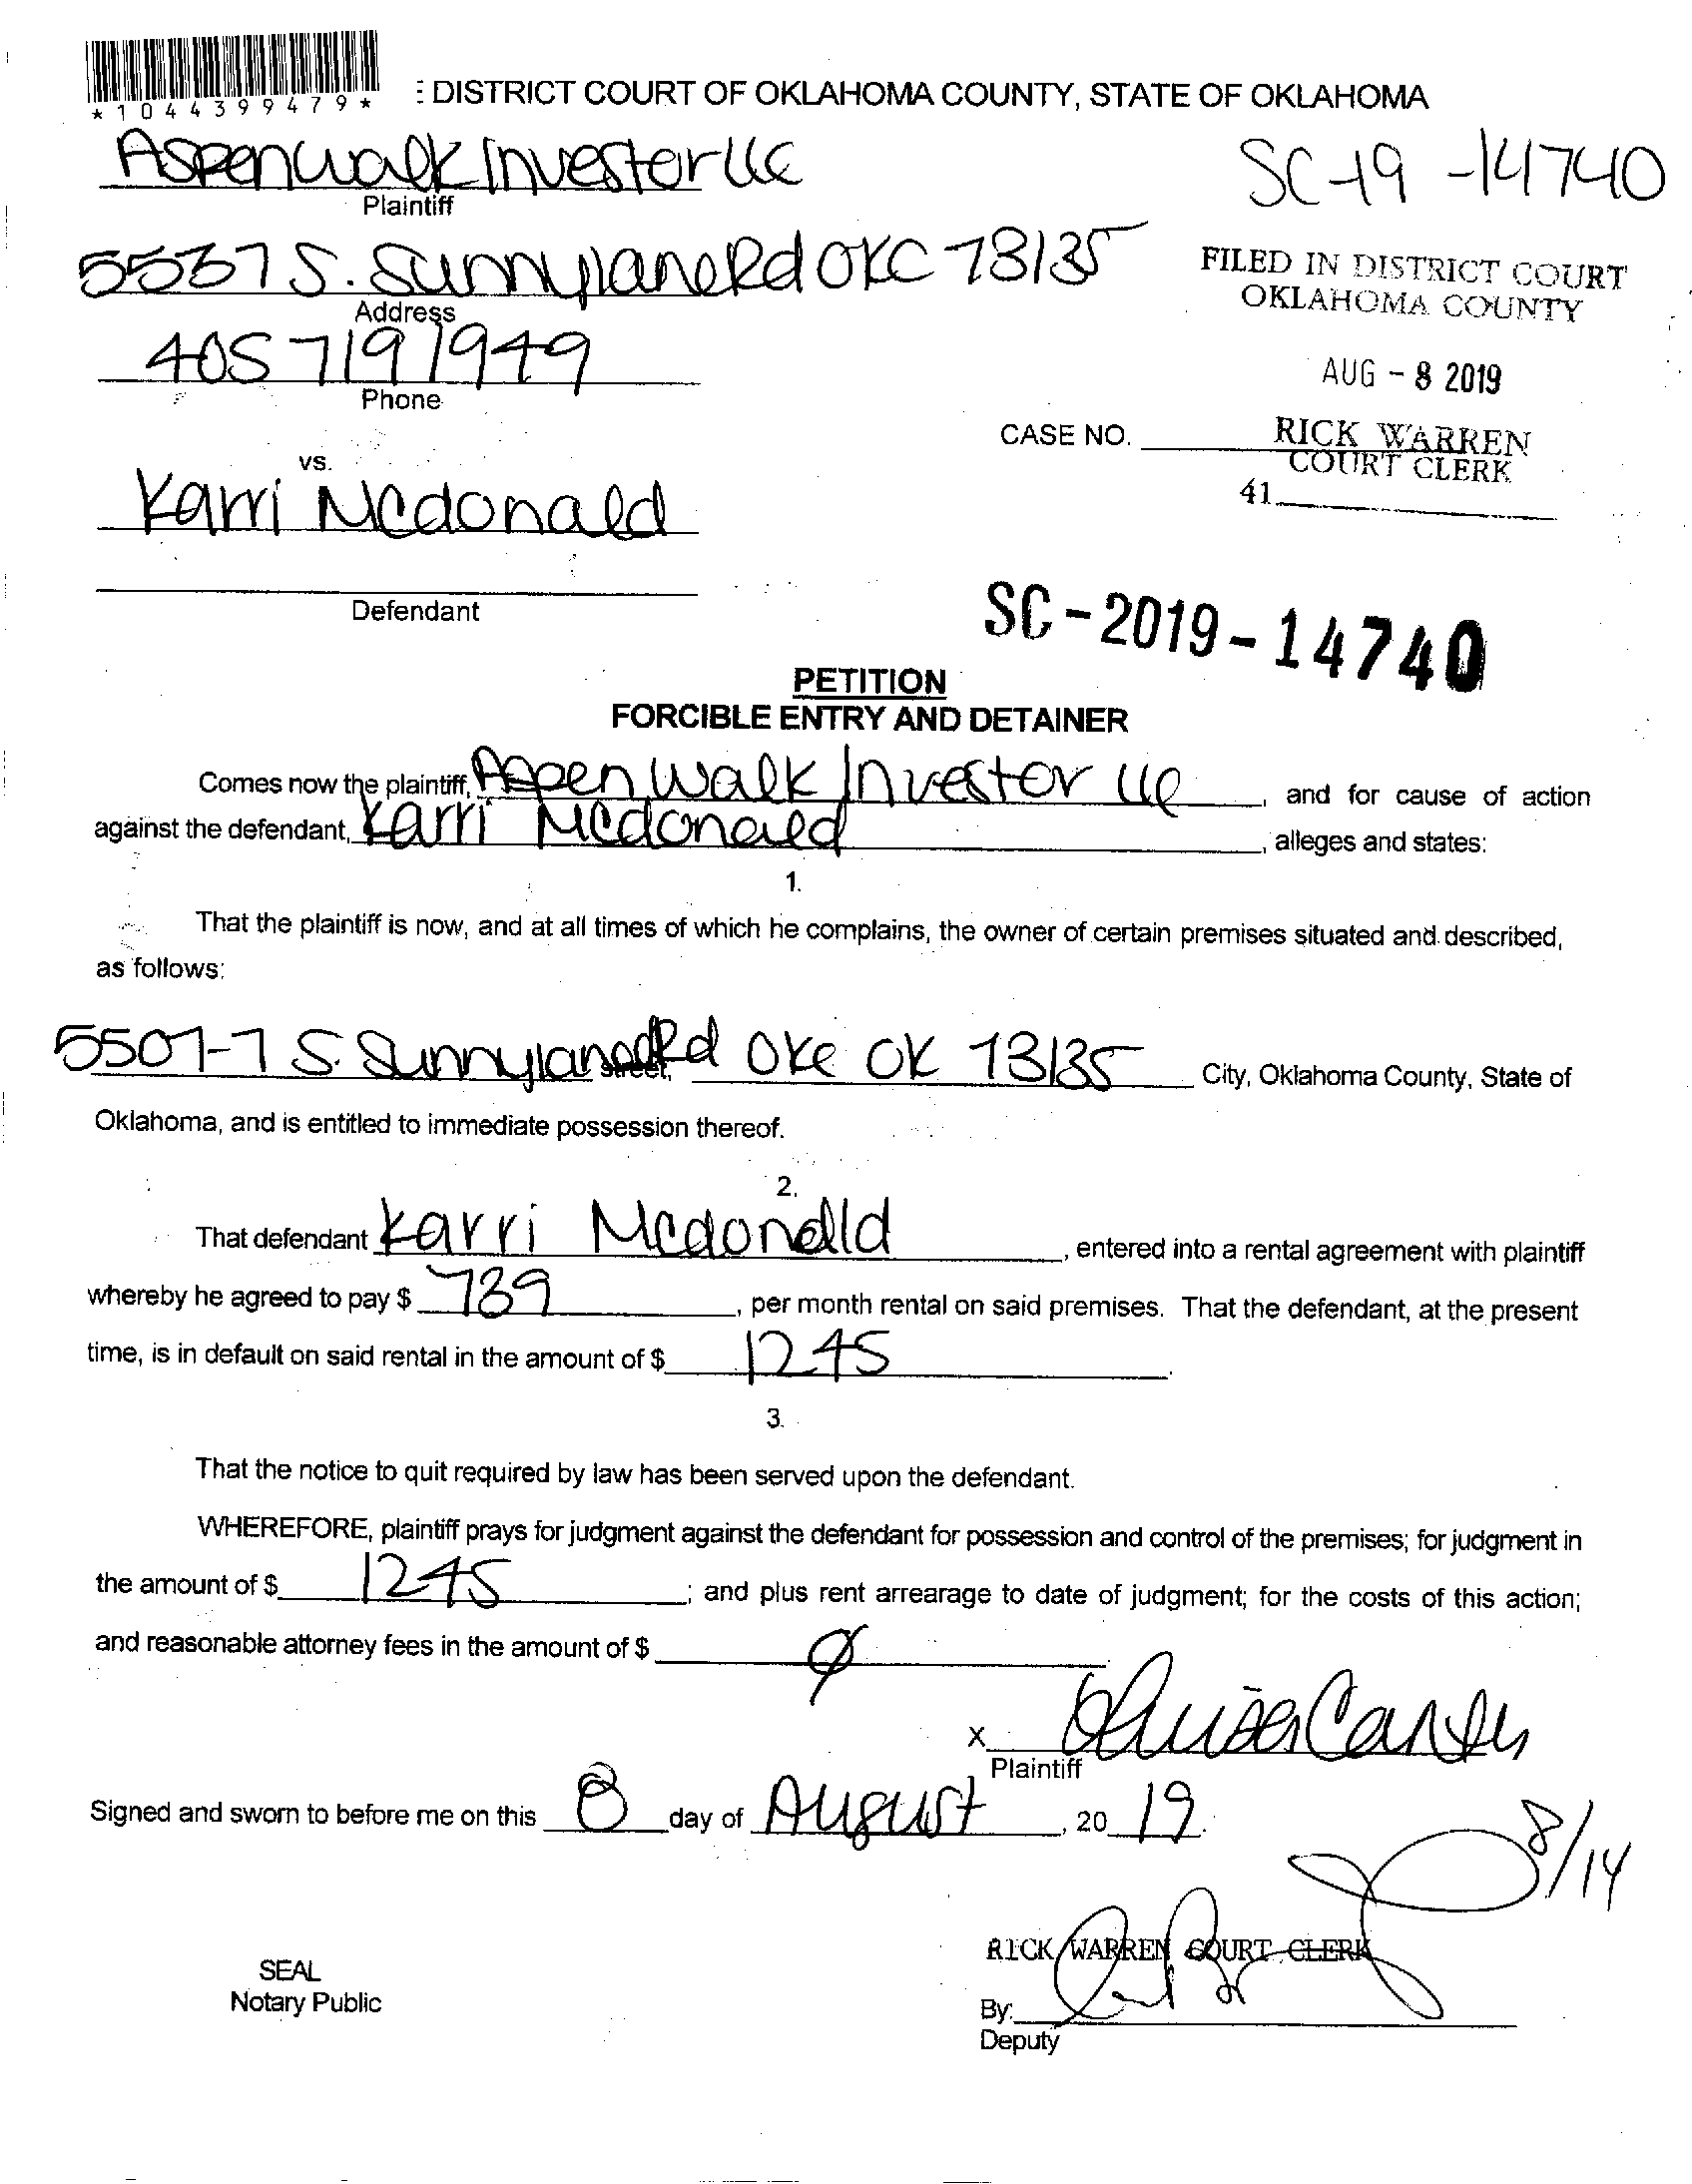 *1044399479*
: DISTRICT COURT OF OKLAHOMA COUNTY, STATE OF OKLAHOMA
Aspenwalk Investor llc
SC-19-14740
Plaintiff
5537 S. Sunnylane Rd OKC 73135
FILED IN DISTRICT COURT
OKLAHOMA COUNTY
Address
405 719 1949
AUG - 8 2019
Phone
CASE NO.
RICK WARREN
COURT CLERK
vs.
41
Karri Mcdonald
Defendant
SC-2019-14740
PETITION
FORCIBLE ENTRY AND DETAINER
Comes now the plaintiff, Aspen Walk Investor llc, and for cause of action
against the defendant, Karri Mcdonald, alleges and states:
1.
That the plaintiff is now, and at all times of which he complains, the owner of certain premises situated and described,
as follows:
5507-7 S. Sunnylane Rd street, OKC OK 73135 City, Oklahoma County, State of
Oklahoma, and is entitled to immediate possession thereof.
2.
That defendant Karri Mcdonald, entered into a rental agreement with plaintiff
whereby he agreed to pay $ 739, per month rental on said premises. That the defendant, at the present
time, is in default on said rental in the amount of $ 1245.
3.
That the notice to quit required by law has been served upon the defendant.
WHEREFORE, plaintiff prays for judgment against the defendant for possession and control of the premises; for judgment in
the amount of $ 1245; and plus rent arrearage to date of judgment; for the costs of this action;
and reasonable attorney fees in the amount of $ ∅
X
Plaintiff
Signed and sworn to before me on this 8 day of August, 20 19.
8/14
RICK WARREN COURT CLERK
SEAL
Notary Public
By:
Deputy